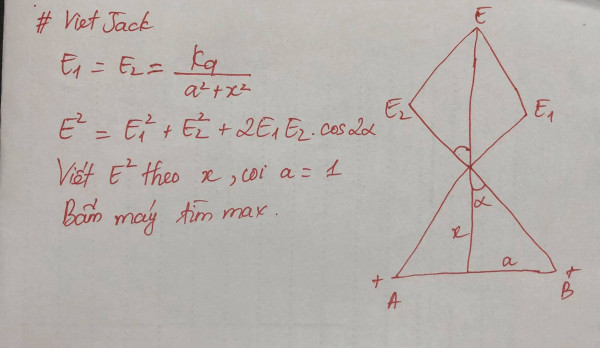 # Viet Jack
E₁ = E₂ = kq / (a² + x²)
E² = E₁² + E₂² + 2E₁E₂.cos2α
Viết E² theo x, coi a = 1
Bấm máy tìm max.
E
E₂
E₁
α
x
a
+
A
+
B